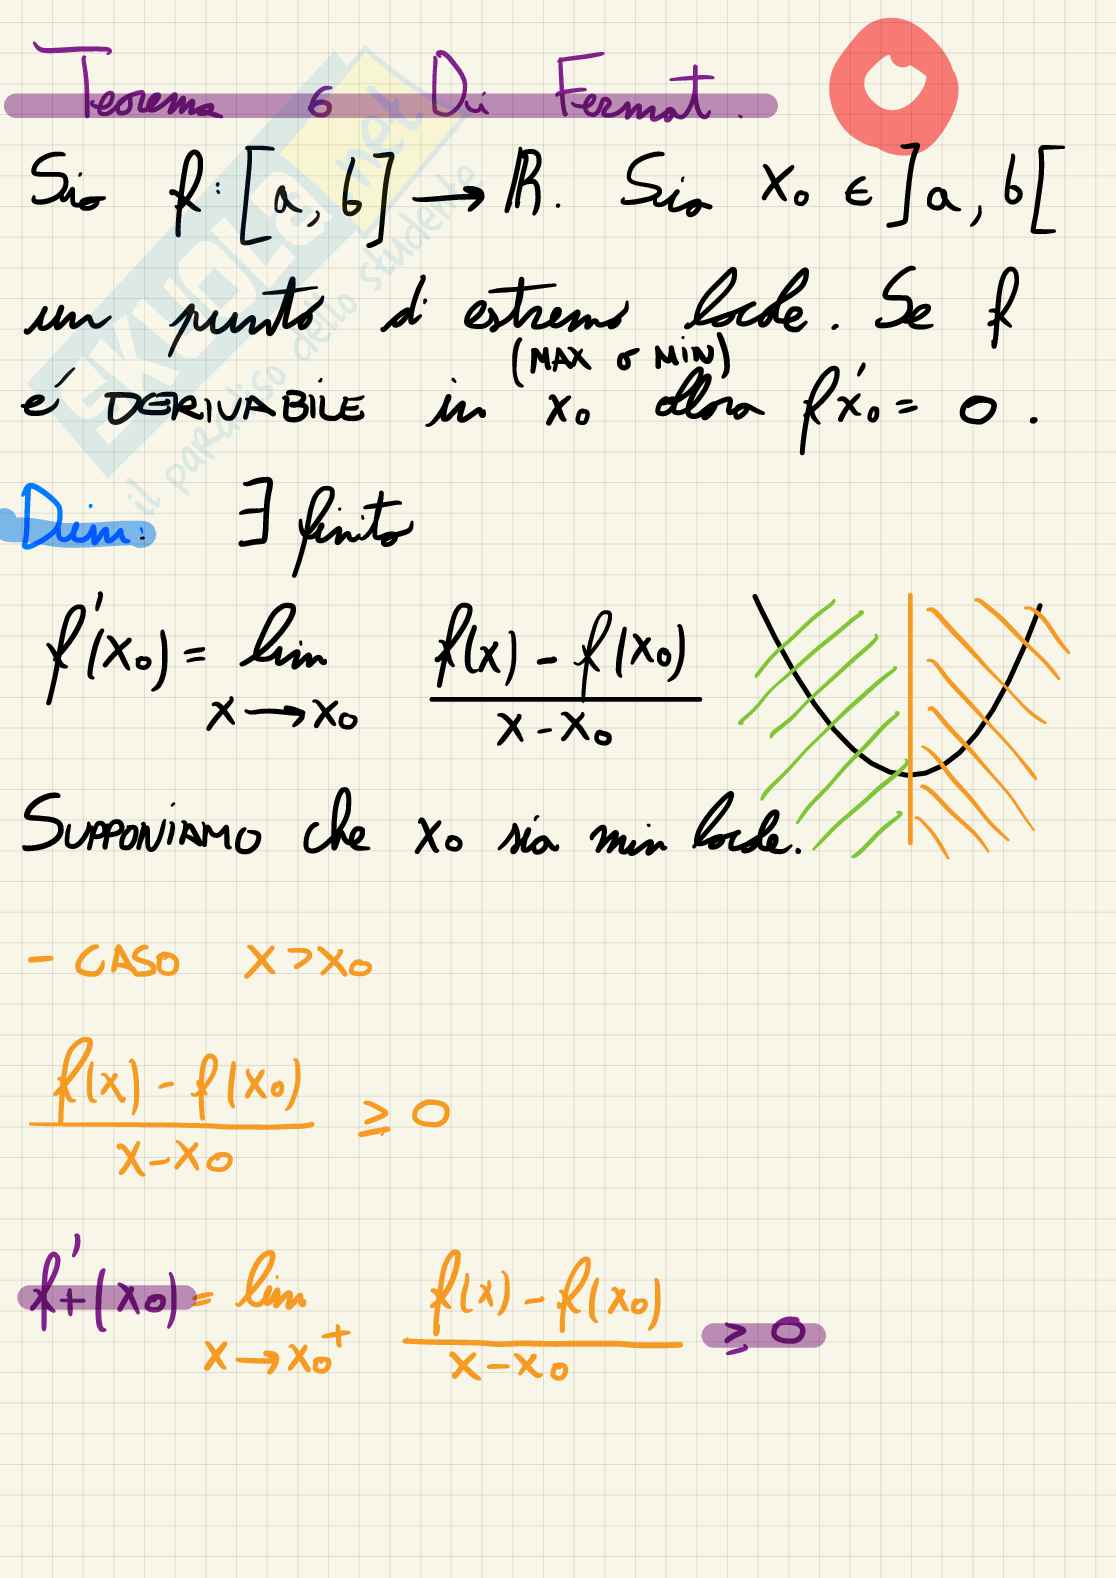 Teorema 6 Di Fermat.
Sia f: [a, b] → ℝ. Sia x₀ ∈ ]a, b[
un punto d'estremo locale. Se f
(MAX o MIN)
é DERIVABILE in x₀ allora f'x₀ = 0.
Dim: ∃ finito
f'(x₀) = lim x → x₀ f(x) - f(x₀) / x - x₀
SUPPONIAMO che x₀ sia min locale.
- CASO x > x₀
f(x) - f(x₀) / x - x₀ ≥ 0
f'+(x₀) = lim x → x₀⁺ f(x) - f(x₀) / x - x₀ ≥ 0
SKUOLA.net
il paradiso dello studente